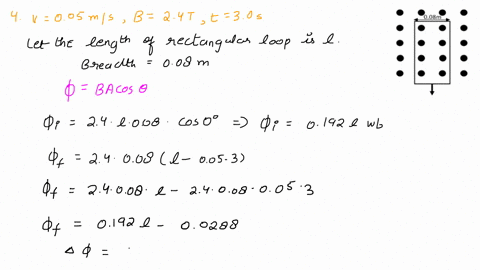 4. v = 0.05 m/s , B = 2.4T , t = 3.0s
Let the length of rectangular loop is l.
Breadth = 0.08 m
0.08m
ϕ = BA cos θ
ϕi = 2.4 · l · 0.08 · cos 0° => ϕi = 0.192 l wb
ϕf = 2.4 · 0.08 (l - 0.05 · 3)
ϕf = 2.4 · 0.08 · l - 2.4 · 0.08 · 0.05 · 3
ϕf = 0.192 l - 0.0288
Δ ϕ =